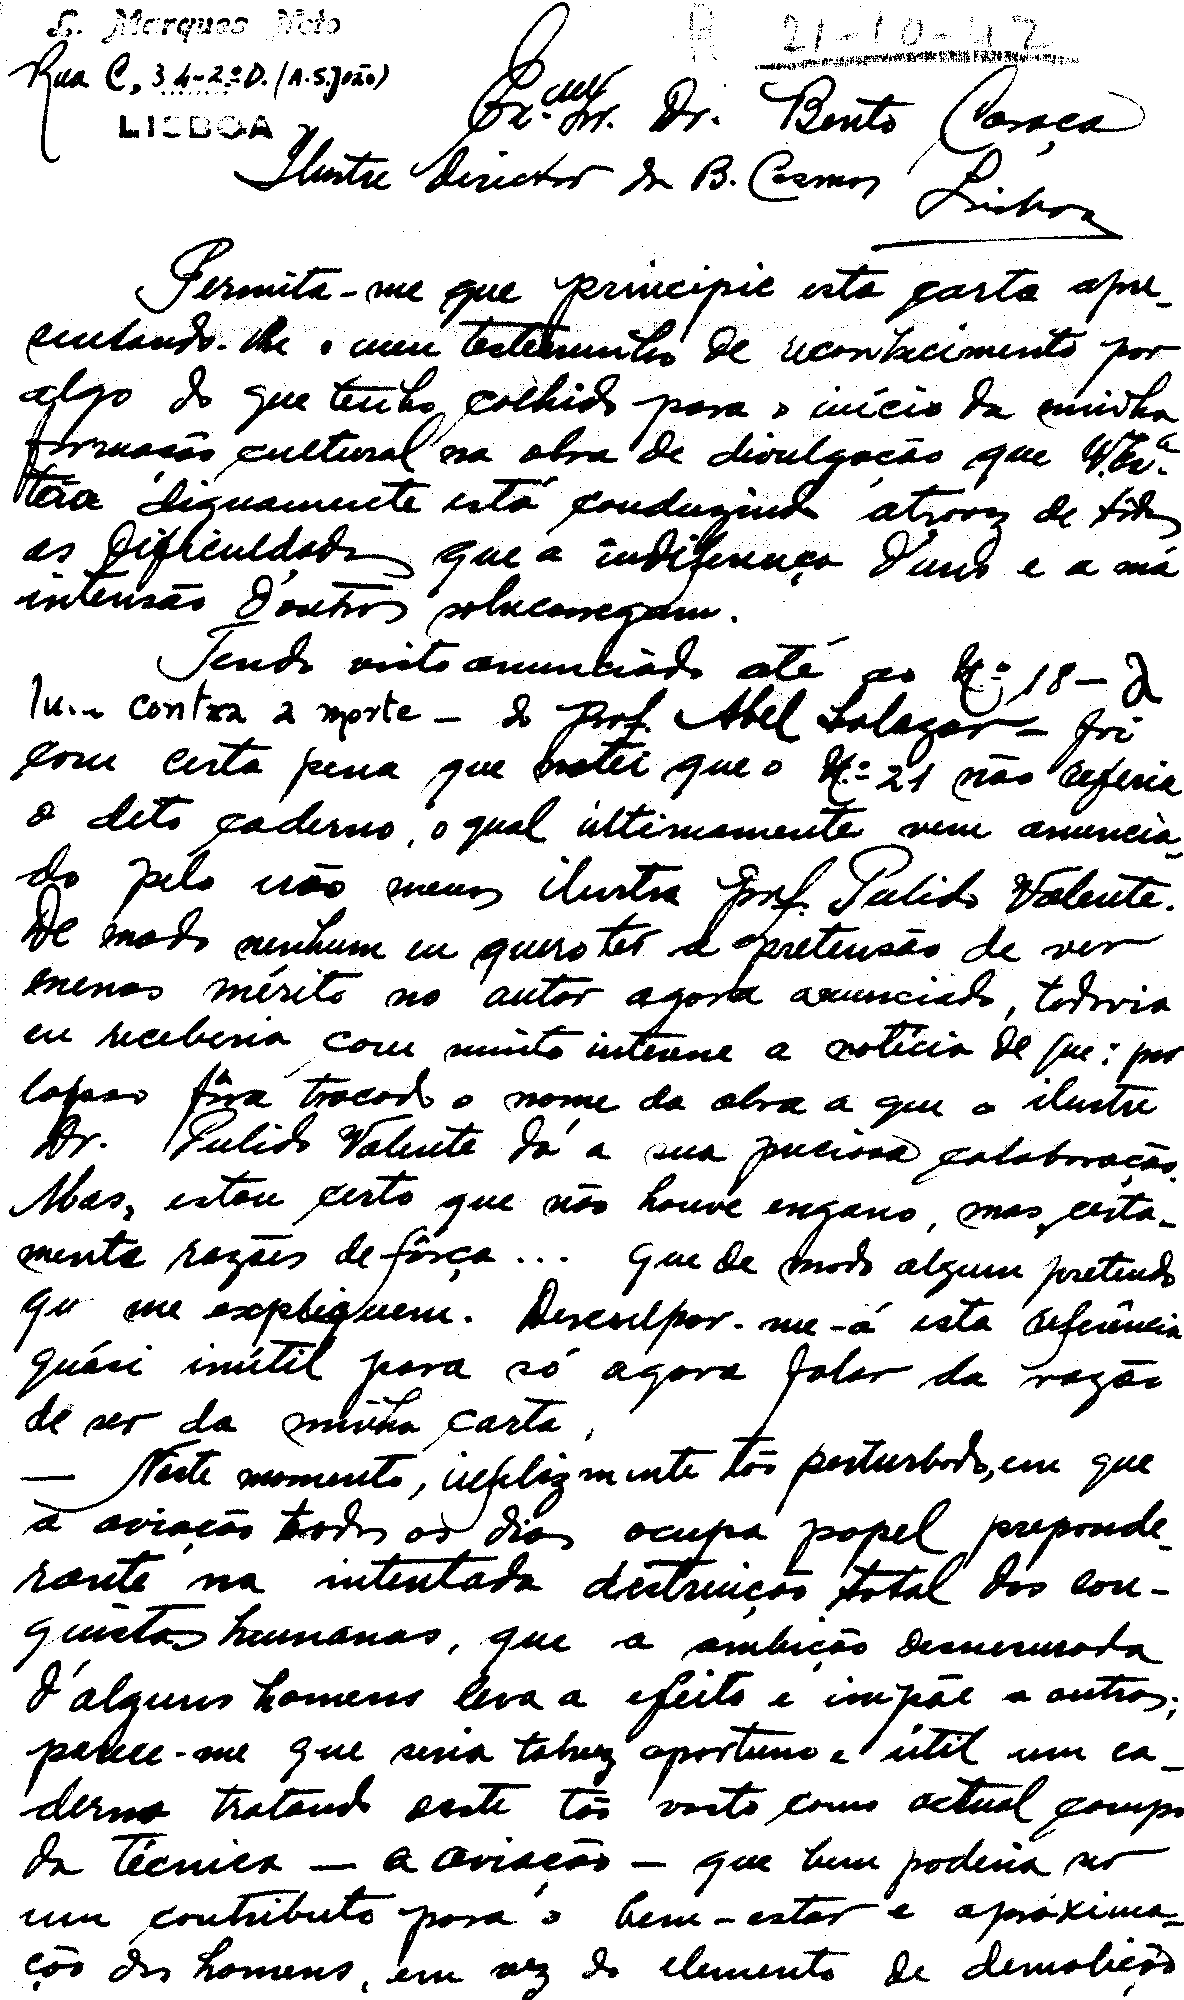 L. Marques Neto
R 21-10-42
Rua C, 34-2º D. (A. S. João)
LISBOA
Ex.mo Sr. Dr. Bento Caraça
Ilustre Director da B. Cosmos
Lisboa
Permita-me que principie esta carta apre-
sentando-lhe o meu testemunho de reconhecimento por
algo do que tenho colhido para o início da minha
formação cultural na obra de divulgação que V. Ex.ª
tão dignamente está conduzindo através de tôdas
as dificuldades que a indiferença d'uns e a má
intensão d'outros sobrecarregam.
Tendo visto anunciado até ao N.º 18 - A
lu... contra a morte - do Prof. Abel Salazar - foi
com certa pena que notei que o N.º 21 não referia
o dito caderno, o qual últimamente vem anuncia-
do pelo não menos ilustre Prof. Pulido Valente.
De modo nenhum eu quero ter a pretensão de ver
menos mérito no autor agora anunciado, todavia
eu receberia com muito interesse a notícia de que: por
lapso fôra trocado o nome da obra a que o ilustre
Dr. Pulido Valente dá a sua preciosa colaboração.
Mas, estou certo que não houve engano, mas, certa-
mente razões de fôrça... que de modo algum pretendo
que me expliquem. Desculpar-me-á esta referência
quási inútil para só agora falar da razão
de ser da minha carta.
— Neste momento, infelizmente tão perturbado, em que
a aviação todos os dias ocupa papel preponde-
rante na intentada destruição total das con-
quistas humanas, que a ambição desmesurada
d'alguns homens leva a efeito e impõe a outros;
parece-me que seria talvez oportuno e útil um ca-
derno tratando neste tão vasto como actual campo
da técnica — a aviação — que bem poderia ser
um contributo para o bem-estar e aproxima-
ção dos homens, em vez do elemento de demolição